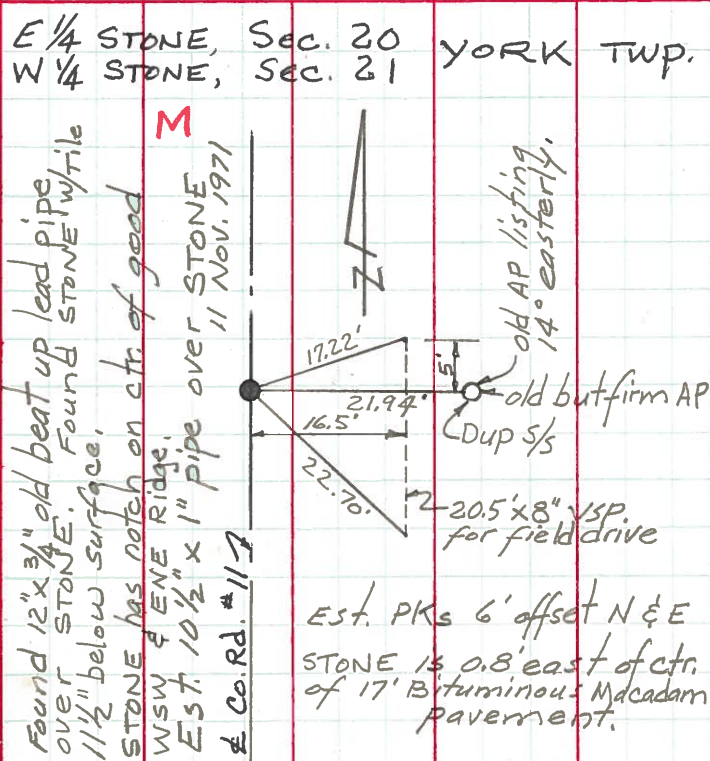 E 1/4 STONE, Sec. 20 YORK TWP.
W 1/4 STONE, Sec. 21
M
Found 12" x 3/4" old beat up lead pipe
over STONE. Found STONE W/Tile
11 1/2" below surface.
STONE has notch on ctr. of good
WSW & ENE Ridge.
Est. 10 1/2" x 1" pipe over STONE
11 Nov. 1971
℄ Co. Rd. #11
N
17.22'
21.94'
16.5'
22.70'
5'
old AP listing
14° easterly.
old but firm AP
Dup S/S
20.5' x 8" VSP
for field drive
Est. PKs 6' offset N & E
STONE is 0.8' east of ctr.
of 17' Bituminous Macadam
pavement.